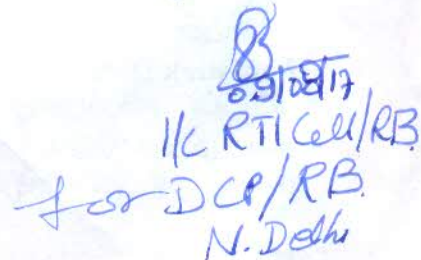 09/08/17
I/C RTI Cell/RB
for DCP/RB.
N. Delhi